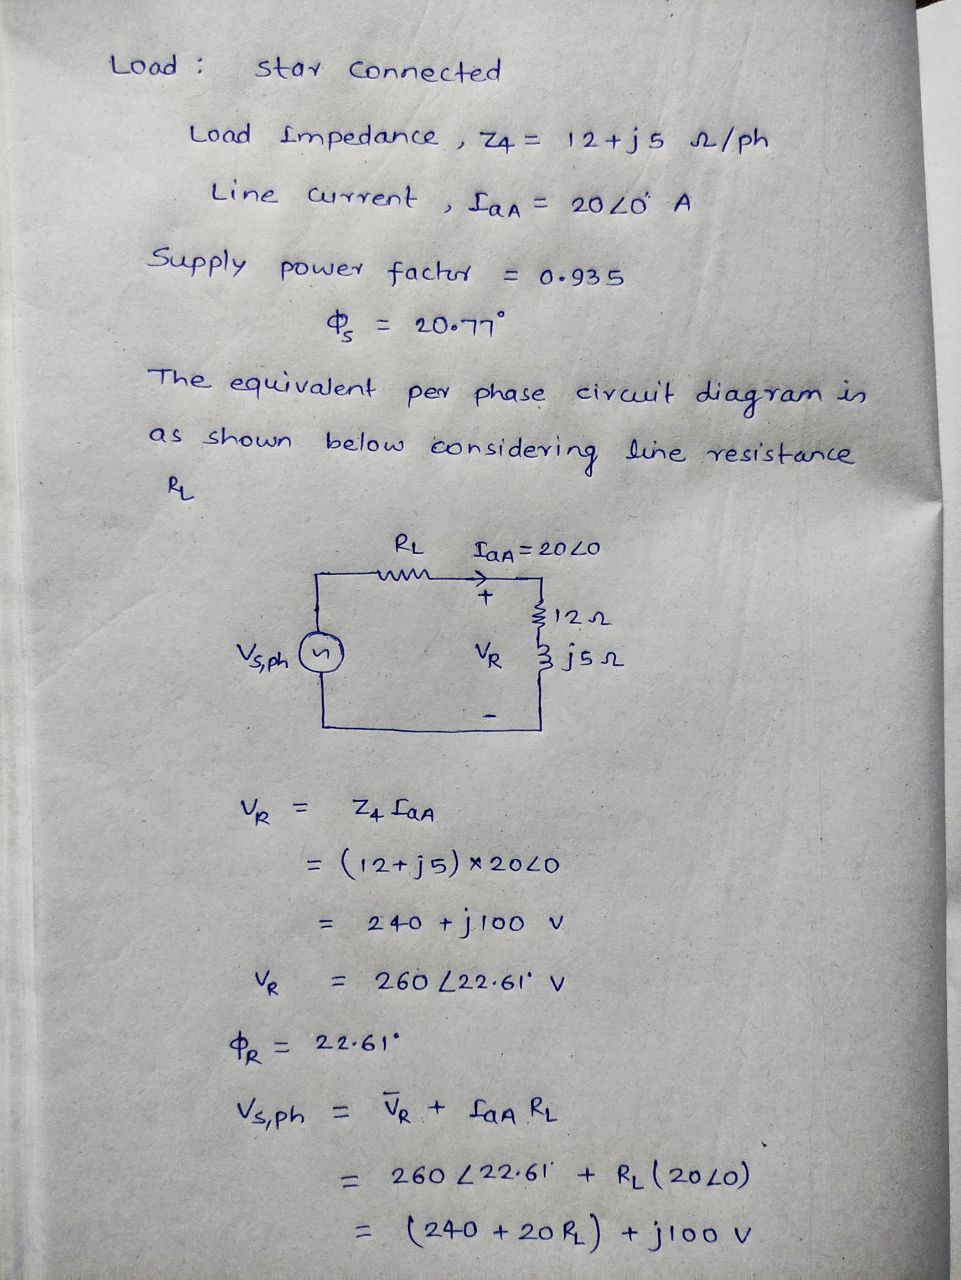 Load : star connected
Load Impedance , Z4 = 12+j5 Ω/ph
Line current , IaA = 20∠0° A
Supply power factor = 0.935
ϕs = 20.77°
The equivalent per phase circuit diagram is
as shown below considering line resistance
RL
RL IaA = 20∠0
+
12Ω
Vs,ph VR j5Ω
-
VR = Z4 IaA
= (12+j5) × 20∠0
= 240 + j100 V
VR = 260 ∠22.61° V
ϕR = 22.61°
Vs,ph = V̄R + IaA RL
= 260 ∠22.61° + RL (20∠0)
= (240 + 20RL) + j100 V